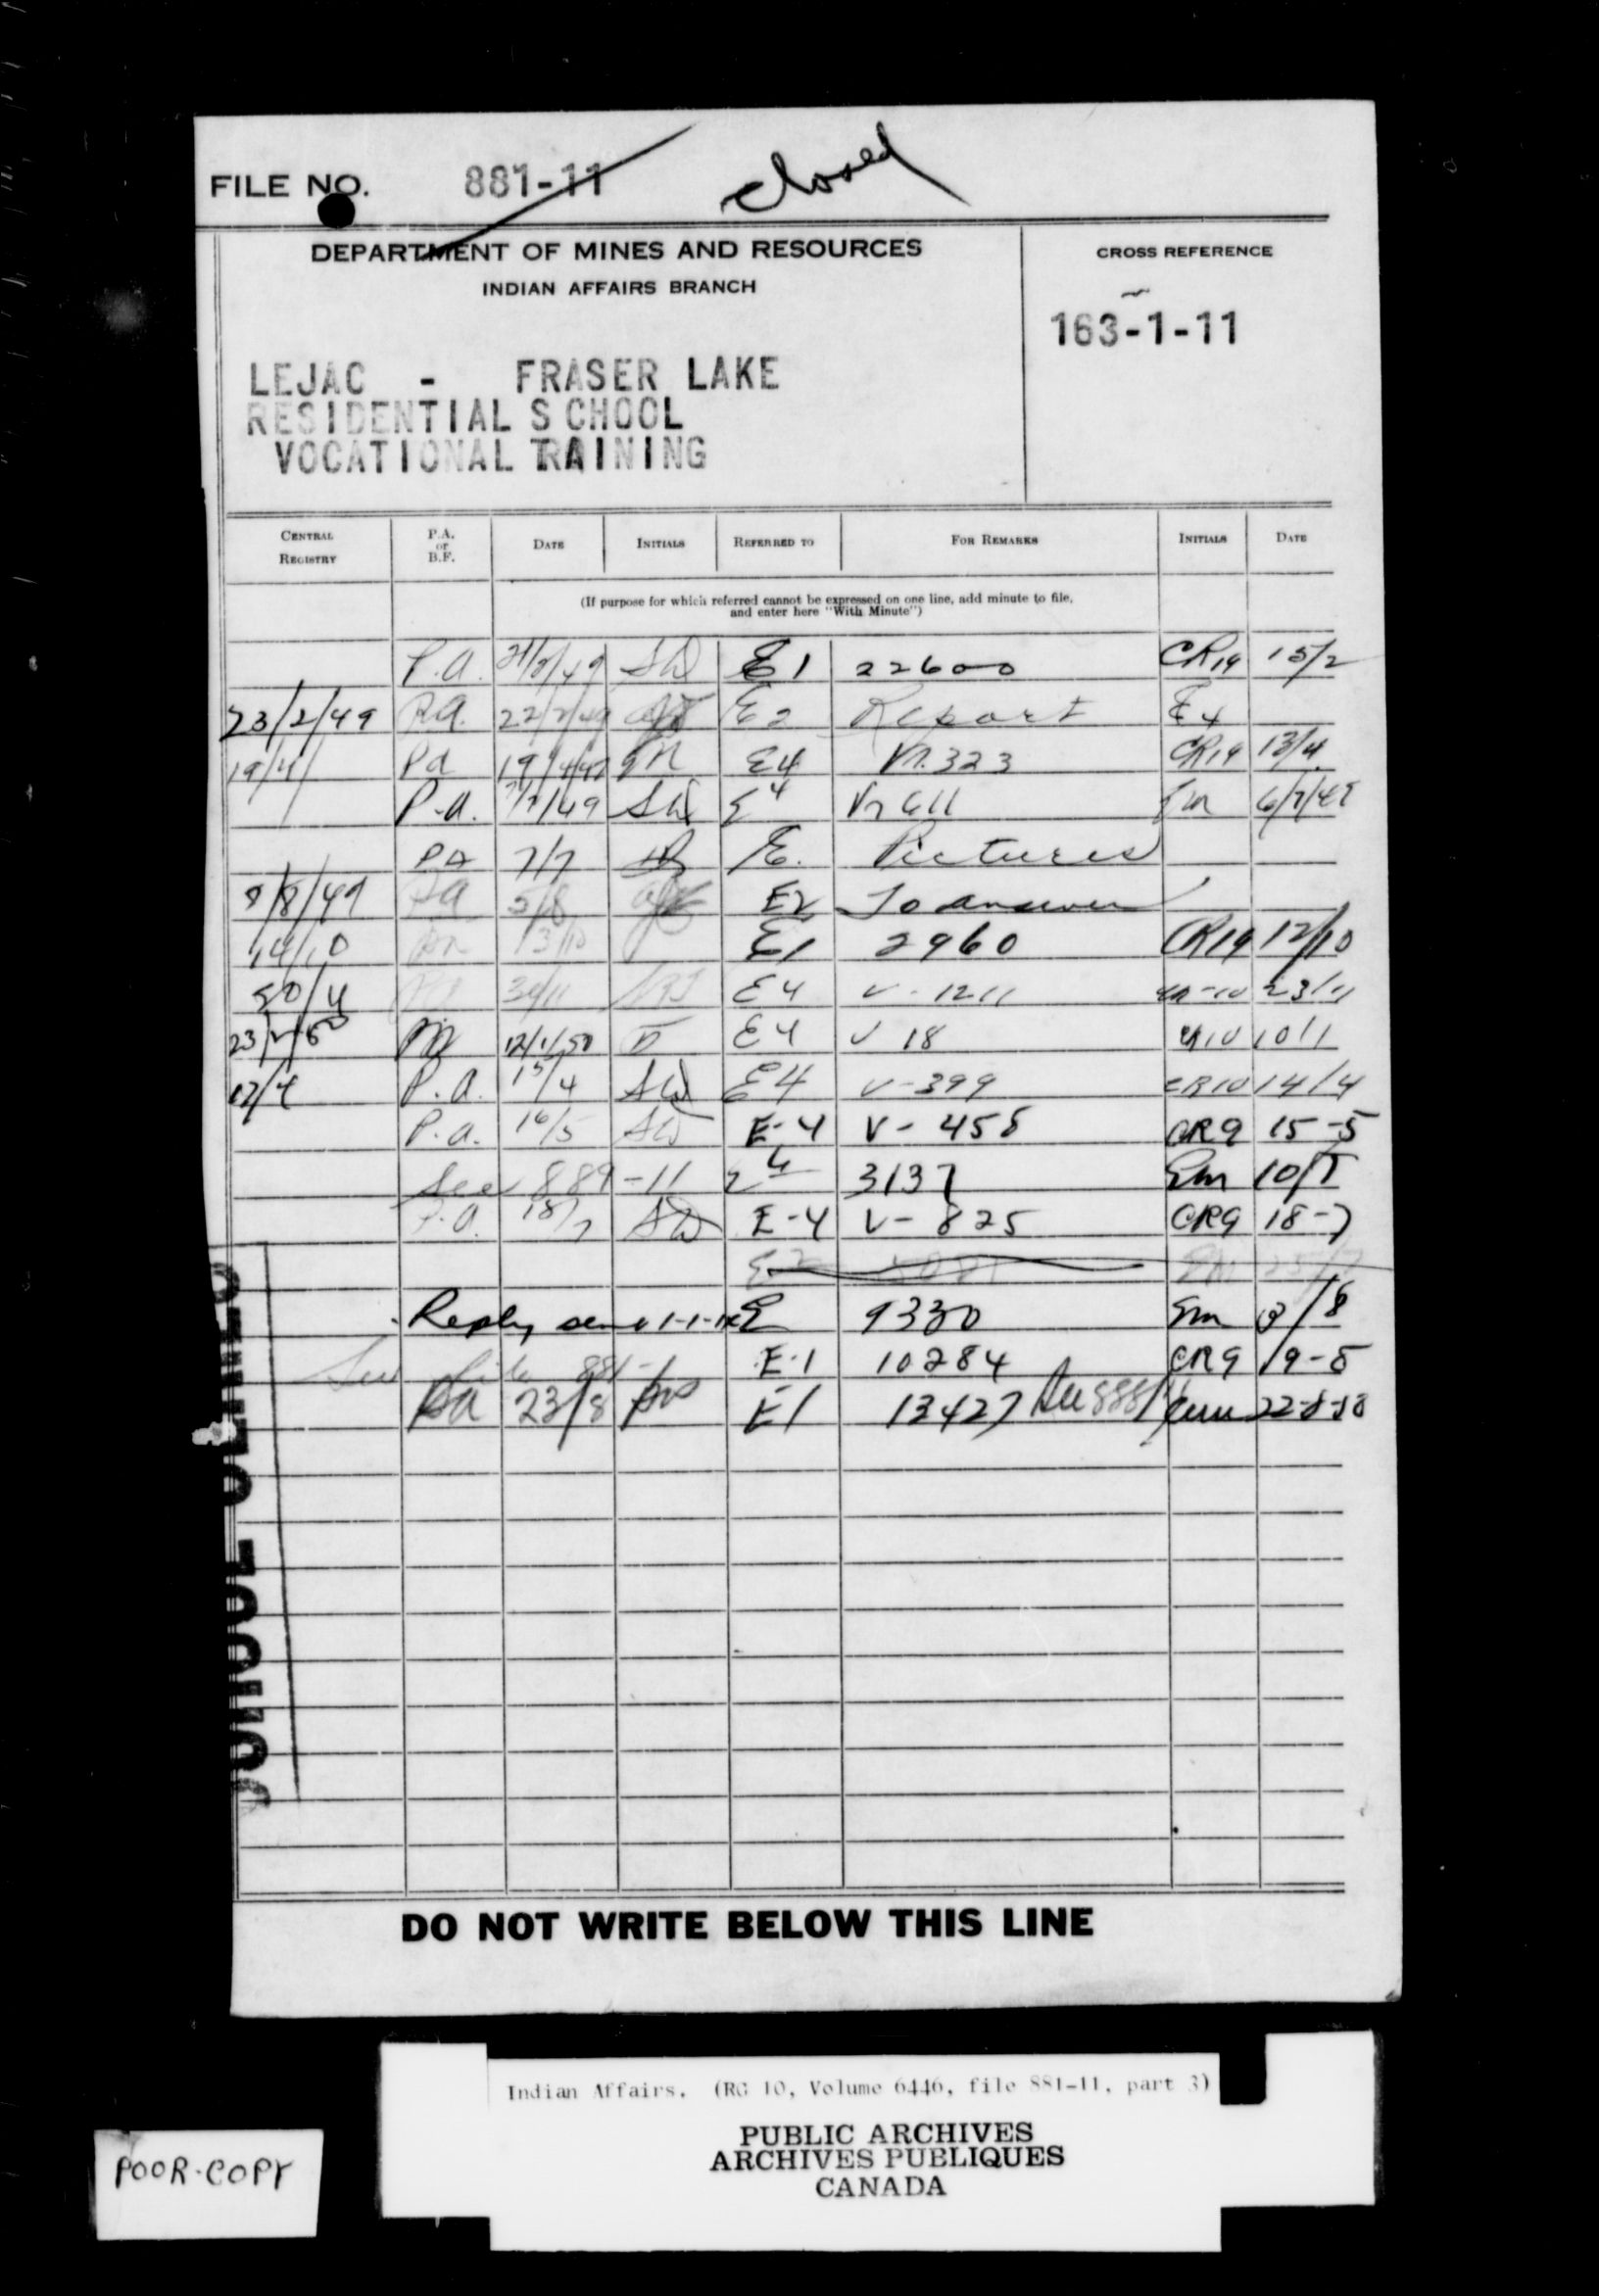 FILE NO. 881-11 closed
DEPARTMENT OF MINES AND RESOURCES
INDIAN AFFAIRS BRANCH
CROSS REFERENCE
163-1-11
LEJAC - FRASER LAKE
RESIDENTIAL SCHOOL
VOCATIONAL TRAINING
CENTRAL REGISTRY P.A. or B.F. DATE INITIALS REFERRED TO FOR REMARKS INITIALS DATE
(If purpose for which referred cannot be expressed on one line, add minute to file,
and enter here "With Minute")
P.a. E1 22600 CR19 15/2
23/2/49 P.a. 22/2/49 E2 Report E4
19/4 Pa 19/4/49 E4 V.323 CR19 13/4
P.a. 7/7/49 E4 V 611 Em 6/7/49
PA 7/7 E. Pictures
8/8/49 Pa 5/8 E2 To answer
14/10 13/10 E1 2960 CR19 12/10
E4 V-1211 23/11
12/1/50 E4 V 18 CR10
P.a. 15/4 E4 V-399 CR10 14/4
P.a. 16/5 E-4 V-458 CR9 15-5
See 889-11 E4 3137 Em
P.a. 18/7 E-4 V-825 CR9 18-7
Reply E 9330 Em
See file 881-1 E-1 10284 CR9
Pa 23/8 E1 13427 See
DO NOT WRITE BELOW THIS LINE
Indian Affairs. (RG 10, Volume 6446, file 881-11, part 3)
PUBLIC ARCHIVES
ARCHIVES PUBLIQUES
CANADA
POOR-COPY